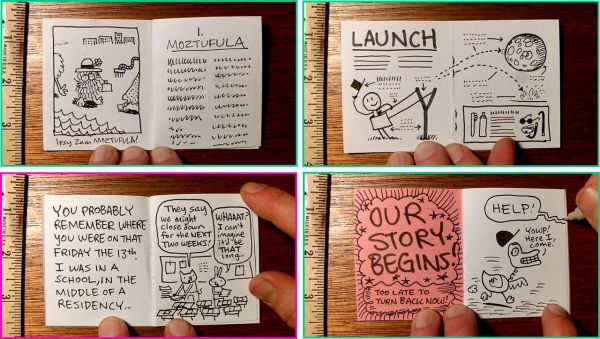 1.
MOZTUFULA
Ipsy Zam MOZTUFULA!
LAUNCH
YOU PROBABLY
REMEMBER WHERE
YOU WERE ON THAT
FRIDAY THE 13th.
I WAS IN A
SCHOOL, IN THE
MIDDLE OF A
RESIDENCY...
They say
we might
close down
for the NEXT
TWO WEEKS!
WHAAAT?
I can't
imagine
it'd be
THAT
long.
OUR
STORY
BEGINS!
TOO LATE TO
TURN BACK NOW!
HELP!
YOWP!
Here I
come.
1
2
3
1
2
3
1
2
3
1
2
3